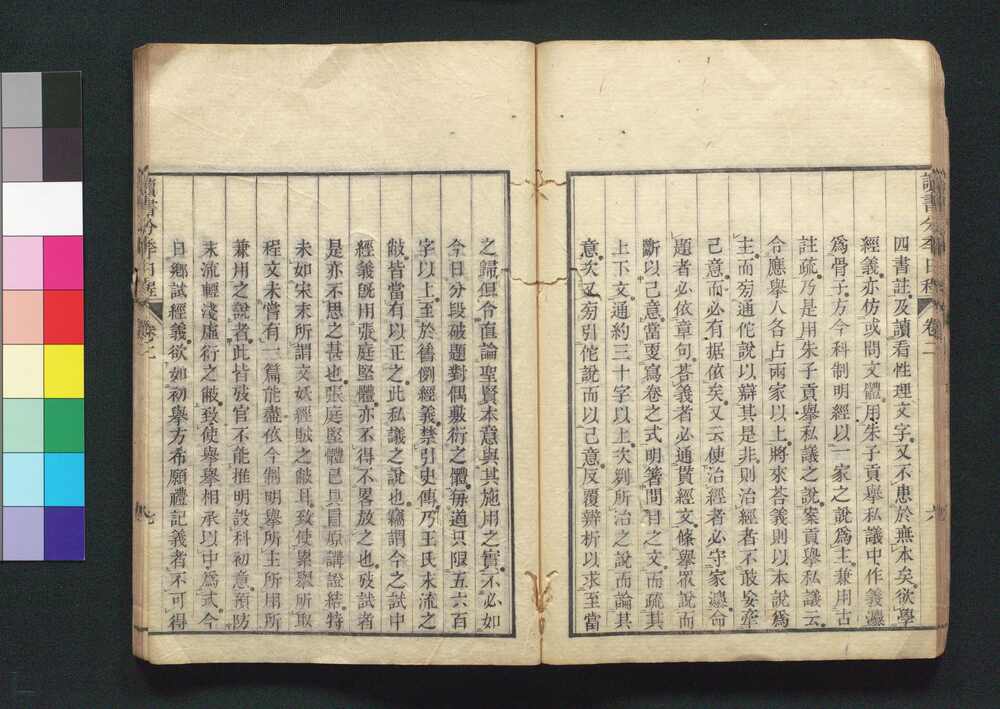 讀書分年日程 卷二
四書註及讀看性理文字又不患於無本矣欲學
經義亦仿或問文體用朱子貢舉私議中作義灋
爲骨子方今科制明經以一家之說爲主兼用古
註疏乃是用朱子貢舉私議之說案貢舉私議云
令應舉人各占兩家以上將來荅義則以本說爲
主而㫄通佗說以辯其是非則治經者不敢妄牽
己意而必有据依矣又云使治經者必守家灋命
題者必依章句荅義者必通貫經文條舉眾說而
斷以己意當更寫卷之式明著問目之文而疏其
上下文通約三十字以上次列所治之說而論其
意次又㫄引佗說而以己意反覆辨析以求至當
之歸但令直論聖賢本意與其施用之實不必如
今日分段破題對偶敷衍之體每道只限五六百
字以上至於舊例經義禁引史傳乃王氏末流之
敝皆當有以正之此私議之說也竊謂今之試中
經義旣用張庭堅體亦不得不畧放之也攷試者
是亦不思之甚也張庭堅體已具冒原講證結特
未如宋末所謂文妖經賊之敝耳致使累舉所取
程文未嘗有一篇能盡依今制明舉所主所用所
兼用之說者此皆攷官不能推明設科初意預防
末流輕淺虛衍之敝致使舉舉相承以中爲式今
日鄉試經義欲如初舉方希願禮記義者不可得
讀書分年日程 卷二